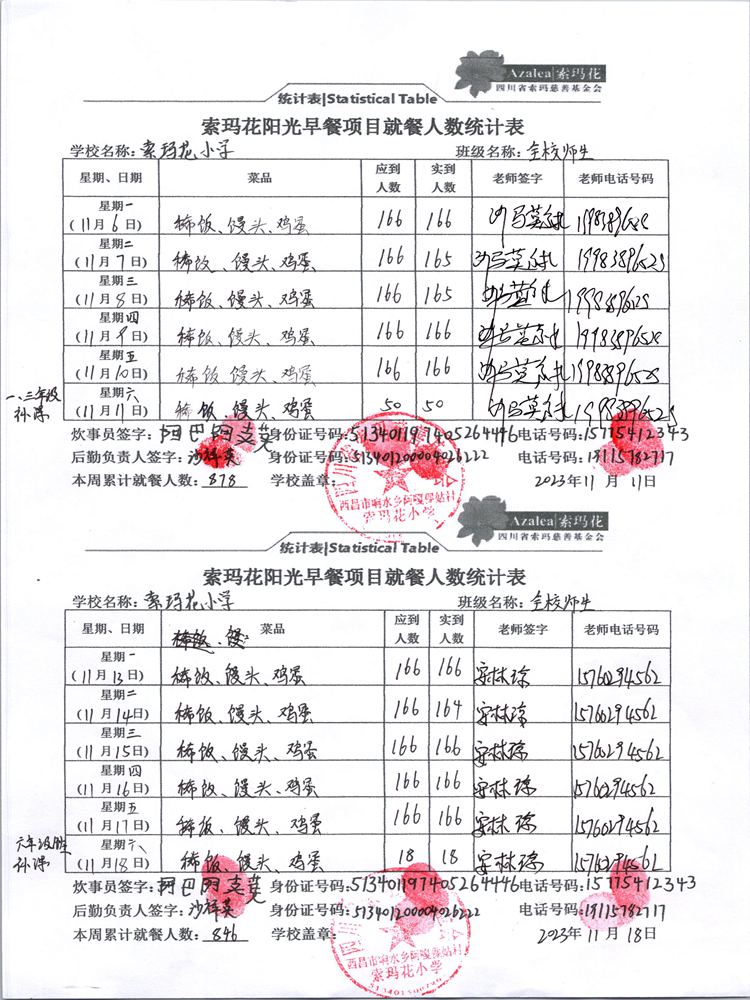 Azalea|索玛花
四川省索玛慈善基金会
统计表|Statistical Table
索玛花阳光早餐项目就餐人数统计表
学校名称: 索玛花小学 班级名称: 全校师生
星期、日期 菜品 应到人数 实到人数 老师签字 老师电话号码
星期一
(11月6日) 稀饭、馒头、鸡蛋 166 166
星期二
(11月7日) 稀饭、馒头、鸡蛋 166 165 19983896525
星期三
(11月8日) 稀饭、馒头、鸡蛋 166 165
星期四
(11月9日) 稀饭、馒头、鸡蛋 166 166
星期五
(11月10日) 稀饭、馒头、鸡蛋 166 166
星期六
(11月11日) 稀饭、馒头、鸡蛋 50 50 19983896525
炊事员签字: 阿巴阿支 身份证号码:513401197405264446 电话号码:15775412343
后勤负责人签字: 沙祥英 身份证号码:513401200004026222 电话号码:18115782717
本周累计就餐人数: 878 学校盖章: 2023年11月11日
索玛花小学
Azalea|索玛花
四川省索玛慈善基金会
统计表|Statistical Table
索玛花阳光早餐项目就餐人数统计表
学校名称: 索玛花小学 班级名称: 全校师生
星期、日期 菜品 应到人数 实到人数 老师签字 老师电话号码
星期一
(11月13日) 稀饭、馒头、鸡蛋 166 166 安林琼 15760294562
星期二
(11月14日) 稀饭、馒头、鸡蛋 166 164 安林琼 15760294562
星期三
(11月15日) 稀饭、馒头、鸡蛋 166 166 安林琼 15760294562
星期四
(11月16日) 稀饭、馒头、鸡蛋 166 166 安林琼 15760294562
星期五
(11月17日) 稀饭、馒头、鸡蛋 166 166 安林琼 15760294562
星期六
(11月18日) 稀饭、馒头、鸡蛋 18 18 安林琼 15760294562
炊事员签字: 阿巴阿支 身份证号码:513401197405264446 电话号码:15775412343
后勤负责人签字: 沙祥英 身份证号码:513401200004026222 电话号码:18115782717
本周累计就餐人数: 846 学校盖章: 2023年11月18日
索玛花小学